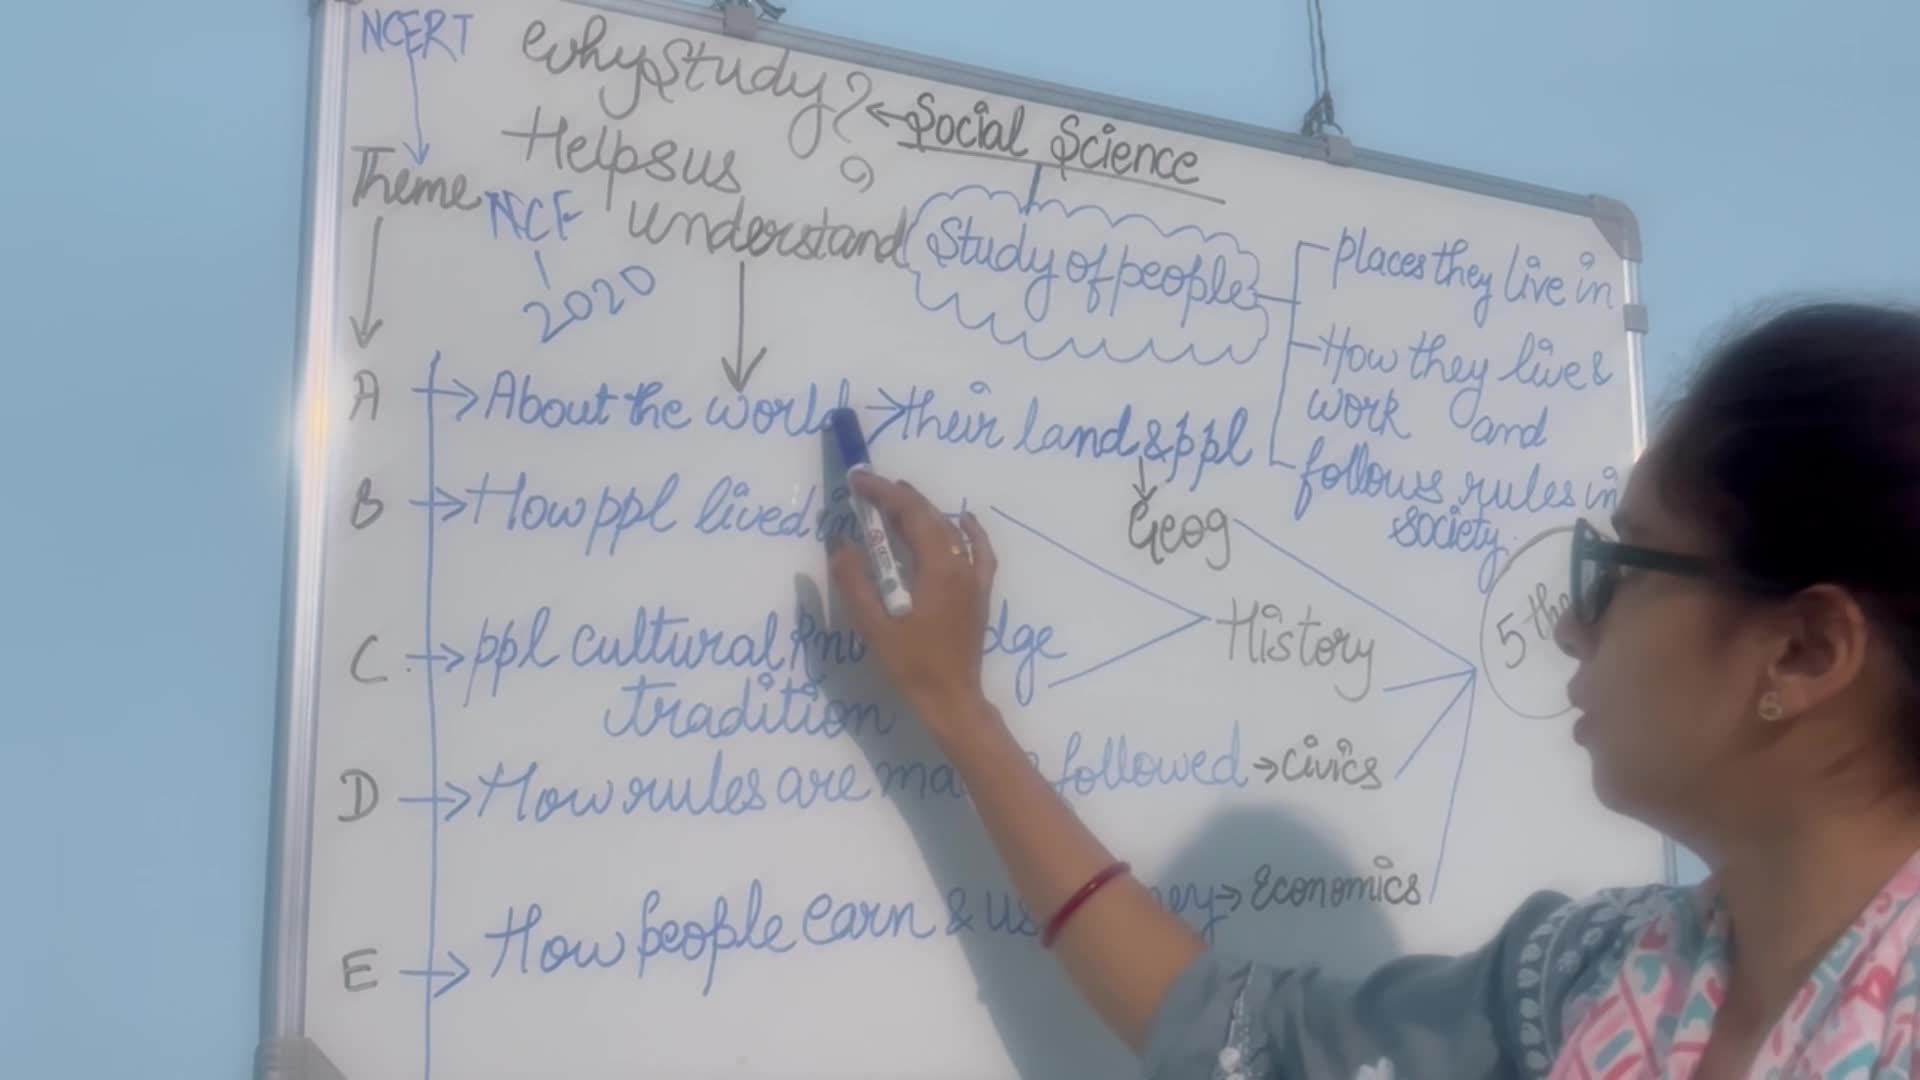 NCERT
Why Study?
Social Science
Theme
Helps us
understand
?
NCF
2020
Study of people
places they live in
How they live &
work and
follows rules in
society.
A → About the world → their land & ppl
Geog
B → How ppl lived in
C → ppl cultural
tradition
History
5
D → How rules are followed → civics
E → How people earn & → Economics